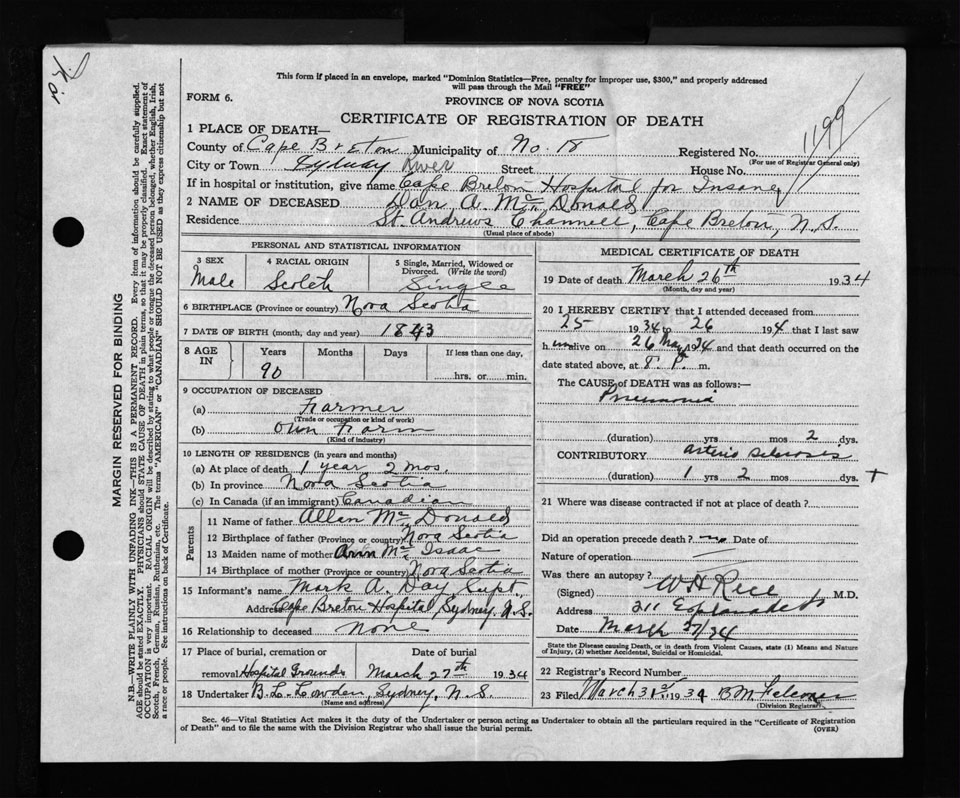 This form if placed in an envelope, marked "Dominion Statistics—Free, penalty for improper use, $300," and properly addressed
will pass through the Mail "FREE"
FORM 6.
PROVINCE OF NOVA SCOTIA
CERTIFICATE OF REGISTRATION OF DEATH
1199
1 PLACE OF DEATH—
County of Cape Breton Municipality of No. 18 Registered No.
(For use of Registrar General only)
City or Town Sydney River Street House No.
If in hospital or institution, give name Cape Breton Hospital for Insane
2 NAME OF DECEASED Dan A. McDonald
Residence St. Andrews Channell, Cape Breton, N.S.
(Usual place of abode)
PERSONAL AND STATISTICAL INFORMATION
3 SEX 4 RACIAL ORIGIN 5 Single, Married, Widowed or Divorced. (Write the word)
Male Scotch Single
6 BIRTHPLACE (Province or country) Nova Scotia
7 DATE OF BIRTH (month, day and year) 1843
8 AGE IN Years Months Days If less than one day,
90 hrs. or min.
9 OCCUPATION OF DECEASED
(a) Farmer
(Trade or occupation or kind of work)
(b) Own Farm
(Kind of industry)
10 LENGTH OF RESIDENCE (in years and months)
(a) At place of death 1 year 2 mos.
(b) In province Nova Scotia
(c) In Canada (if an immigrant) Canadian
Parents
11 Name of father Allan McDonald
12 Birthplace of father (Province or country) Nova Scotia
13 Maiden name of mother Ann McIsaac
14 Birthplace of mother (Province or country) Nova Scotia
15 Informant's name Mark A. Day Supt.
Address Cape Breton Hospital, Sydney, N.S.
16 Relationship to deceased None
17 Place of burial, cremation or removal Hospital Grounds Date of burial March 27th 1934
18 Undertaker B. L. Lowden, Sydney, N.S.
(Name and address)
MEDICAL CERTIFICATE OF DEATH
19 Date of death March 26th 1934
(Month, day and year)
20 I HEREBY CERTIFY that I attended deceased from
25 1934 to 26 194 that I last saw
h im alive on 26 Mar 1934 and that death occurred on the
date stated above, at 8 P. m.
The CAUSE OF DEATH was as follows:—
Pneumonia
(duration) yrs mos 2 dys.
CONTRIBUTORY Arterio Sclerosis
(duration) 1 yrs 2 mos dys.
21 Where was disease contracted if not at place of death?
Did an operation precede death? no Date of
Nature of operation
Was there an autopsy?
(Signed) W H Rice M.D.
Address 211 Esplanade
Date March 27/34
State the Disease causing Death, or in death from Violent Causes, state (1) Means and Nature
of Injury, (2) whether Accidental, Suicidal or Homicidal.
22 Registrar's Record Number
23 Filed March 31st 1934 B M
(Division Registrar)
Sec. 46—Vital Statistics Act makes it the duty of the Undertaker or person acting as Undertaker to obtain all the particulars required in the "Certificate of Registration
of Death" and to file the same with the Division Registrar who shall issue the burial permit.
(OVER)
MARGIN RESERVED FOR BINDING
N.B.—WRITE PLAINLY WITH UNFADING INK—THIS IS A PERMANENT RECORD. Every item of information should be carefully supplied.
AGE should be stated EXACTLY. PHYSICIANS should STATE CAUSE OF DEATH in plain terms, so that it may be properly classified. Exact statement of
OCCUPATION is very important. RACIAL ORIGIN will be described by stating to what people or tongue the deceased person belonged, whether English, Irish,
Scotch, French, German, Russian, Ruthenian, etc. The terms "AMERICAN" or "CANADIAN" SHOULD NOT BE USED as they express citizenship but not
a race or people. See instructions on back of Certificate.